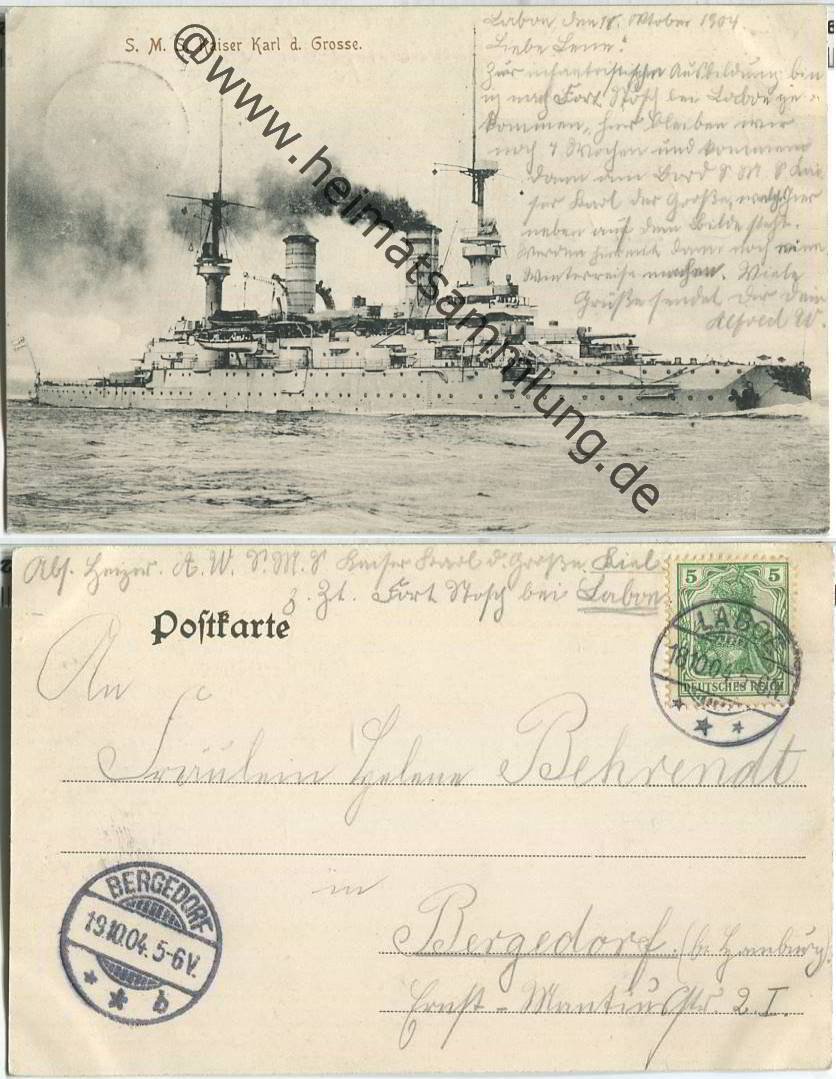 S. M. S. Kaiser Karl d. Grosse.
Laboe den 18. Oktober 1904.
Liebe Lene!
Zur infanteristischen Ausbildung bin
ich nach Fort Stosch bei Laboe ge-
kommen, hier bleiben wir
noch 4 Wochen und kommen
dann an Bord S M S Kai-
ser Karl der Große, welches hier
neben auf dem Bilde steht.
Werden dann noch eine
Winterreise machen. Viele
Grüße sendet Dir Dein
Alfred W.
@www.heimatsammlung.de
Abs. Heizer. A. W. S. M. S Kaiser Karl d. Große, Kiel
z. Zt. Fort Stosch bei Laboe
Postkarte
5
DEUTSCHES REICH
LABOE
18.10.04. 5-6N.
An
Fräulein Helene Behrendt
in
BERGEDORF
19.10.04. 5-6V.
* * b
Bergedorf. (bei Hamburg).
Ernst-Mantiusstr. 2. I.